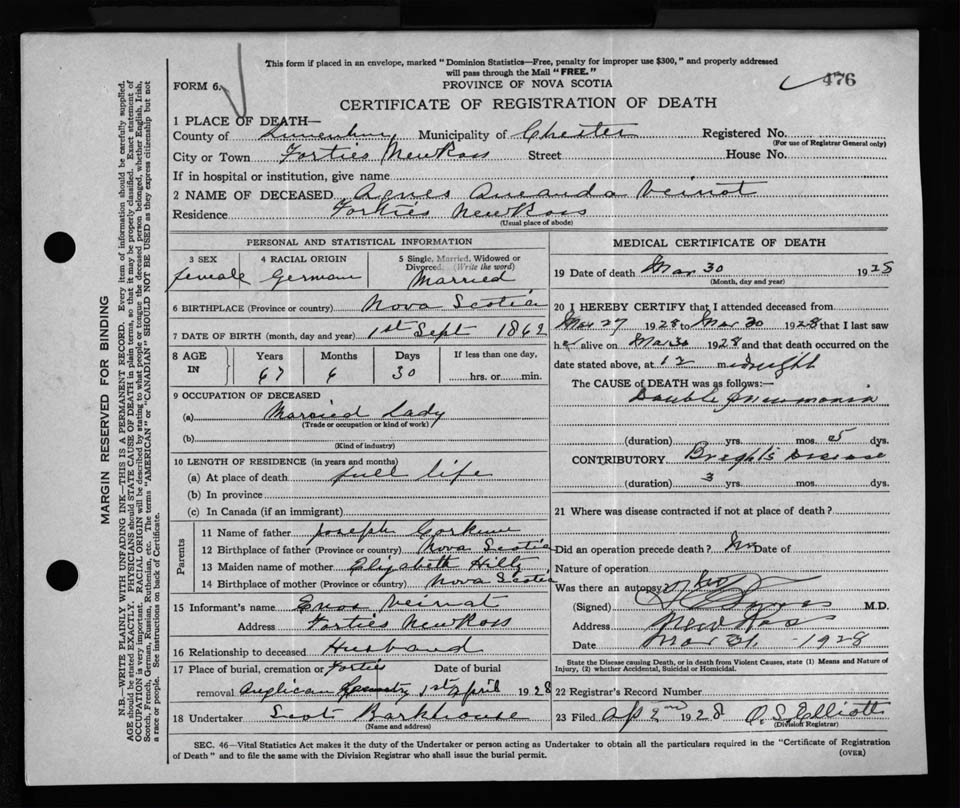 This form if placed in an envelope, marked "Dominion Statistics—Free, penalty for improper use $300," and properly addressed
will pass through the Mail "FREE."
FORM 6.
PROVINCE OF NOVA SCOTIA
476
CERTIFICATE OF REGISTRATION OF DEATH
1 PLACE OF DEATH—
County of Lunenburg Municipality of Chester Registered No.
(For use of Registrar General only)
City or Town Forties New Ross Street House No.
If in hospital or institution, give name
2 NAME OF DECEASED Agnes Amanda Veinot
Residence Forties New Ross
(Usual place of abode)
PERSONAL AND STATISTICAL INFORMATION
3 SEX 4 RACIAL ORIGIN 5 Single, Married, Widowed or
Divorced. (Write the word)
female German Married
6 BIRTHPLACE (Province or country) Nova Scotia
7 DATE OF BIRTH (month, day and year) 1st Sept 1862
8 AGE IN Years Months Days If less than one day,
67 6 30 hrs. or min.
9 OCCUPATION OF DECEASED
(a) Married Lady
(Trade or occupation or kind of work)
(b)
(Kind of industry)
10 LENGTH OF RESIDENCE (in years and months)
(a) At place of death full life
(b) In province
(c) In Canada (if an immigrant)
Parents
11 Name of father Joseph
12 Birthplace of father (Province or country) Nova Scotia
13 Maiden name of mother Elizabeth Hiltz
14 Birthplace of mother (Province or country) Nova Scotia
15 Informant's name Enos Veinot
Address Forties New Ross
16 Relationship to deceased Husband
17 Place of burial, cremation or Forties Date of burial
removal Anglican 1st April 1928
18 Undertaker Scott Barkhouse
(Name and address)
MEDICAL CERTIFICATE OF DEATH
19 Date of death Mar 30 1928
(Month, day and year)
20 I HEREBY CERTIFY that I attended deceased from
Mar 27 1928 to Mar 30 1928 that I last saw
her alive on Mar 30 1928 and that death occurred on the
date stated above, at 12 m. idnight
The CAUSE of DEATH was as follows:—
Double Pneumonia
(duration) yrs. mos. 5 dys.
CONTRIBUTORY Bright's Disease
(duration) 3 yrs. mos. dys.
21 Where was disease contracted if not at place of death?
Did an operation precede death? No Date of
Nature of operation
Was there an autopsy? No
(Signed) M.D.
Address New Ross
Date Mar 31 - 1928
State the Disease causing Death, or in death from Violent Causes, state (1) Means and Nature of
Injury, (2) whether Accidental, Suicidal or Homicidal.
22 Registrar's Record Number
23 Filed Ap 2nd 1928 O. S. Elliott
(Division Registrar)
SEC. 46—Vital Statistics Act makes it the duty of the Undertaker or person acting as Undertaker to obtain all the particulars required in the "Certificate of Registration
of Death" and to file the same with the Division Registrar who shall issue the burial permit.
(OVER)
MARGIN RESERVED FOR BINDING
N.B.—WRITE PLAINLY WITH UNFADING INK—THIS IS A PERMANENT RECORD. Every item of information should be carefully supplied.
AGE should be stated EXACTLY. PHYSICIANS should STATE CAUSE OF DEATH in plain terms, so that it may be properly classified. Exact statement of
OCCUPATION is very important. RACIAL ORIGIN will be described by stating to what people or tongue the deceased person belonged, whether English, Irish,
Scotch, French, German, Russian, Ruthenian, etc. The terms "AMERICAN" or "CANADIAN" SHOULD NOT BE USED as they express citizenship but not
a race or people. See instructions on back of Certificate.